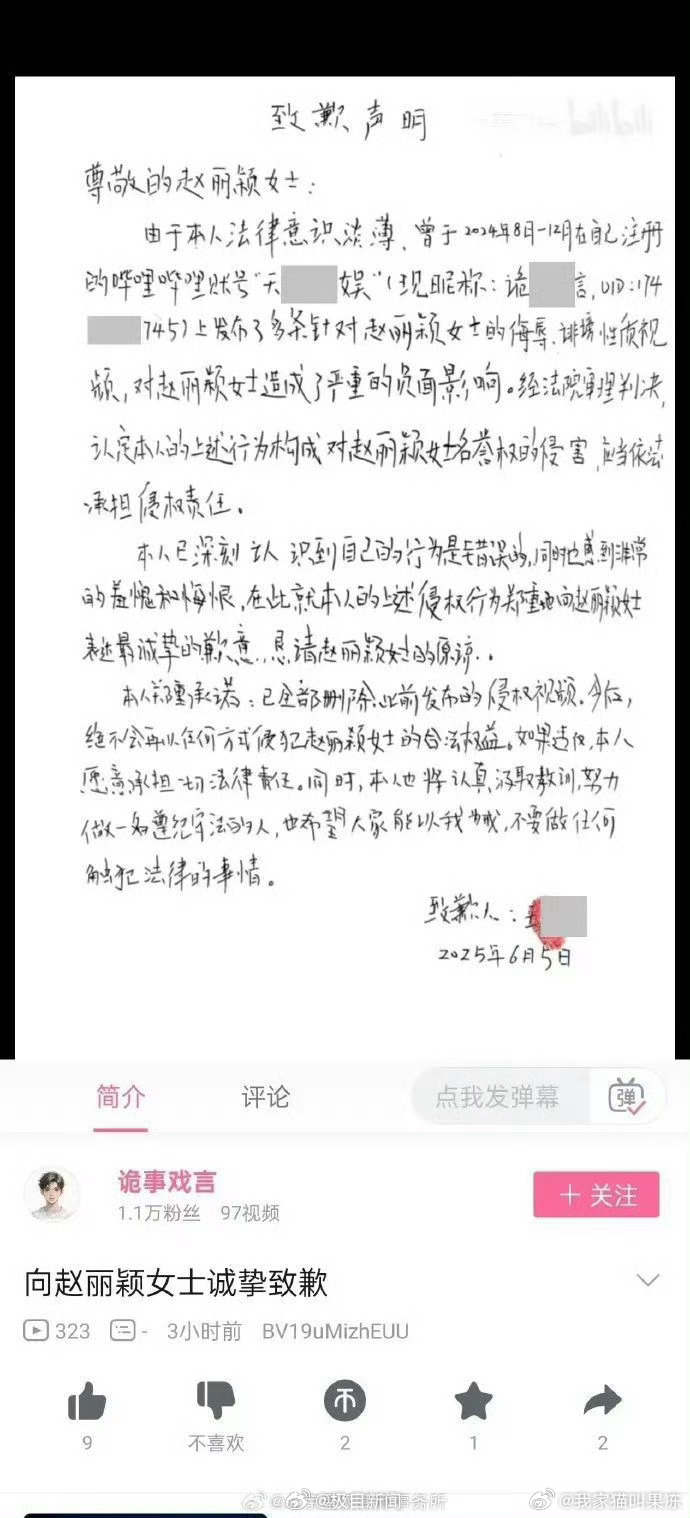 致歉声明
bilibili
尊敬的赵丽颖女士：
由于本人法律意识淡薄，曾于2024年8月-12月在自己注册
的哔哩哔哩账号“天 娱”（现昵称：诡 言，UID：174
745）上发布了多条针对赵丽颖女士的侮辱、诽谤性质视
频，对赵丽颖女士造成了严重的负面影响。经法院审理判决，
认定本人的上述行为构成对赵丽颖女士名誉权的侵害，应当依法
承担侵权责任。
本人已深刻认识到自己的行为是错误的，同时也感到非常
的羞愧和悔恨，在此就本人的上述侵权行为郑重地向赵丽颖女士
表达最诚挚的歉意，恳请赵丽颖女士的原谅..
本人郑重承诺：已全部删除此前发布的侵权视频。今后，
绝不会再以任何方式侵犯赵丽颖女士的合法权益。如果违反，本人
愿意承担一切法律责任。同时，本人也将认真汲取教训，努力
做一名遵纪守法的人，也希望大家能以我为戒，不要做任何
触犯法律的事情。
致歉人：
2025年6月5日
简介 评论 点我发弹幕 弹
诡事戏言
1.1万粉丝 97视频
+ 关注
向赵丽颖女士诚挚致歉
323 - 3小时前 BV19uMizhEUU
9 不喜欢 2 1 2
@极目新闻
事务所
@我家猫叫果冻